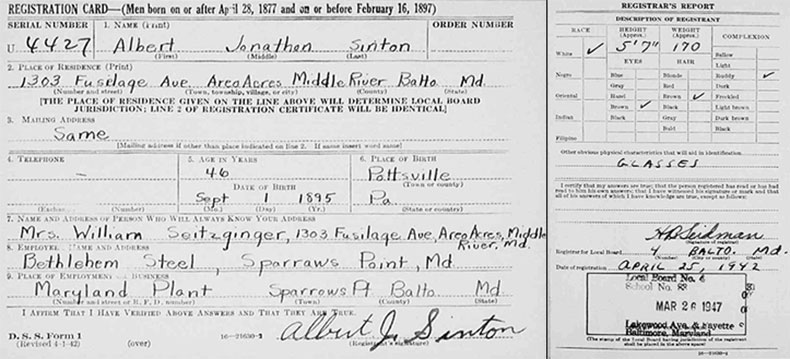 REGISTRATION CARD—(Men born on or after April 28, 1877 and on or before February 16, 1897)
SERIAL NUMBER
1. NAME (Print)
ORDER NUMBER
U 4427 Albert Jonathan Sinton
(First) (Middle) (Last)
2. PLACE OF RESIDENCE (Print)
1303 Fusilage Ave. Aero Acres Middle River Balto Md.
(Number and street) (Town, township, village, or city) (County) (State)
[THE PLACE OF RESIDENCE GIVEN ON THE LINE ABOVE WILL DETERMINE LOCAL BOARD
JURISDICTION; LINE 2 OF REGISTRATION CERTIFICATE WILL BE IDENTICAL]
3. MAILING ADDRESS
Same
[Mailing address if other than place indicated on line 2. If same insert word same]
4. TELEPHONE
5. AGE IN YEARS
6. PLACE OF BIRTH
-
46
Pottsville
(Town or county)
DATE OF BIRTH
Sept 1 1895
Pa.
(Exchange) (Number)
(Mo.) (Day) (Yr.)
(State or country)
7. NAME AND ADDRESS OF PERSON WHO WILL ALWAYS KNOW YOUR ADDRESS
Mrs. William Seitzginger, 1303 Fusilage Ave, Aero Acres, Middle River, Md.
8. EMPLOYER'S NAME AND ADDRESS
Bethlehem Steel, Sparraws Point, Md.
9. PLACE OF EMPLOYMENT OR BUSINESS
Maryland Plant Sparrows Pt Balto Md
(Number and street or R. F. D. number) (Town) (County) (State)
I AFFIRM THAT I HAVE VERIFIED ABOVE ANSWERS AND THAT THEY ARE TRUE.
D. S. S. Form 1
(Revised 4-1-42) (over) 16-21630-2
Albert J. Sinton
(Registrant's signature)
REGISTRAR'S REPORT
DESCRIPTION OF REGISTRANT
RACE
HEIGHT (Approx.)
WEIGHT (Approx.)
COMPLEXION
White ✓
5'7"
170
Sallow
Light
EYES
HAIR
Ruddy ✓
Negro
Blue
Blonde
Dark
Gray
Red
Freckled
Oriental
Hazel
Brown ✓
Light brown
Brown ✓
Black
Dark brown
Indian
Black
Gray
Black
Bald
Filipino
Other obvious physical characteristics that will aid in identification
GLASSES
I certify that my answers are true; that the person registered has read or has had
read to him his own answers; that I have witnessed his signature or mark and that
all of his answers of which I have knowledge are true, except as follows:
H. R. Seidman
(Signature of registrar)
Registrar for Local Board 4 BALTO. Md.
(Number) (City or county) (State)
Date of registration APRIL 25, 1942
Local Board No. 4
School No. 83
MAR 26 1947
Lakewood Ave. & Fayette
Baltimore, Maryland
(The stamp of the Local Board having jurisdiction of the registrant
shall be placed in the above space)